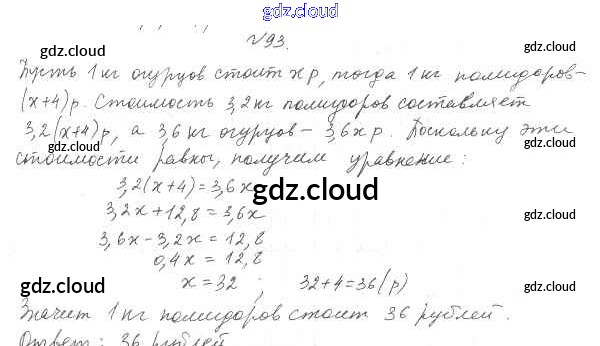 gdz.cloud
√93.
gdz.cloud gdz.cloud
Пусть 1 кг огурцов стоит x р, тогда 1 кг помидоров –
(x+4) р. Стоимость 3,2 кг помидоров составляет
gdz.cloud gdz.cloud
3,2(x+4) р, а 3,6 кг огурцов – 3,6x р. Поскольку эти
стоимости равны, получим уравнение:
3,2(x+4)=3,6x
gdz.cloud
3,2x+12,8=3,6x
gdz.cloud
3,6x-3,2x=12,8
0,4x=12,8
gdz.cloud
x=32 ; 32+4=36(р)
gdz.cloud
Значит 1 кг помидоров стоит 36 рублей.
gdz.cloud gdz.cloud
Ответ: 36 рублей